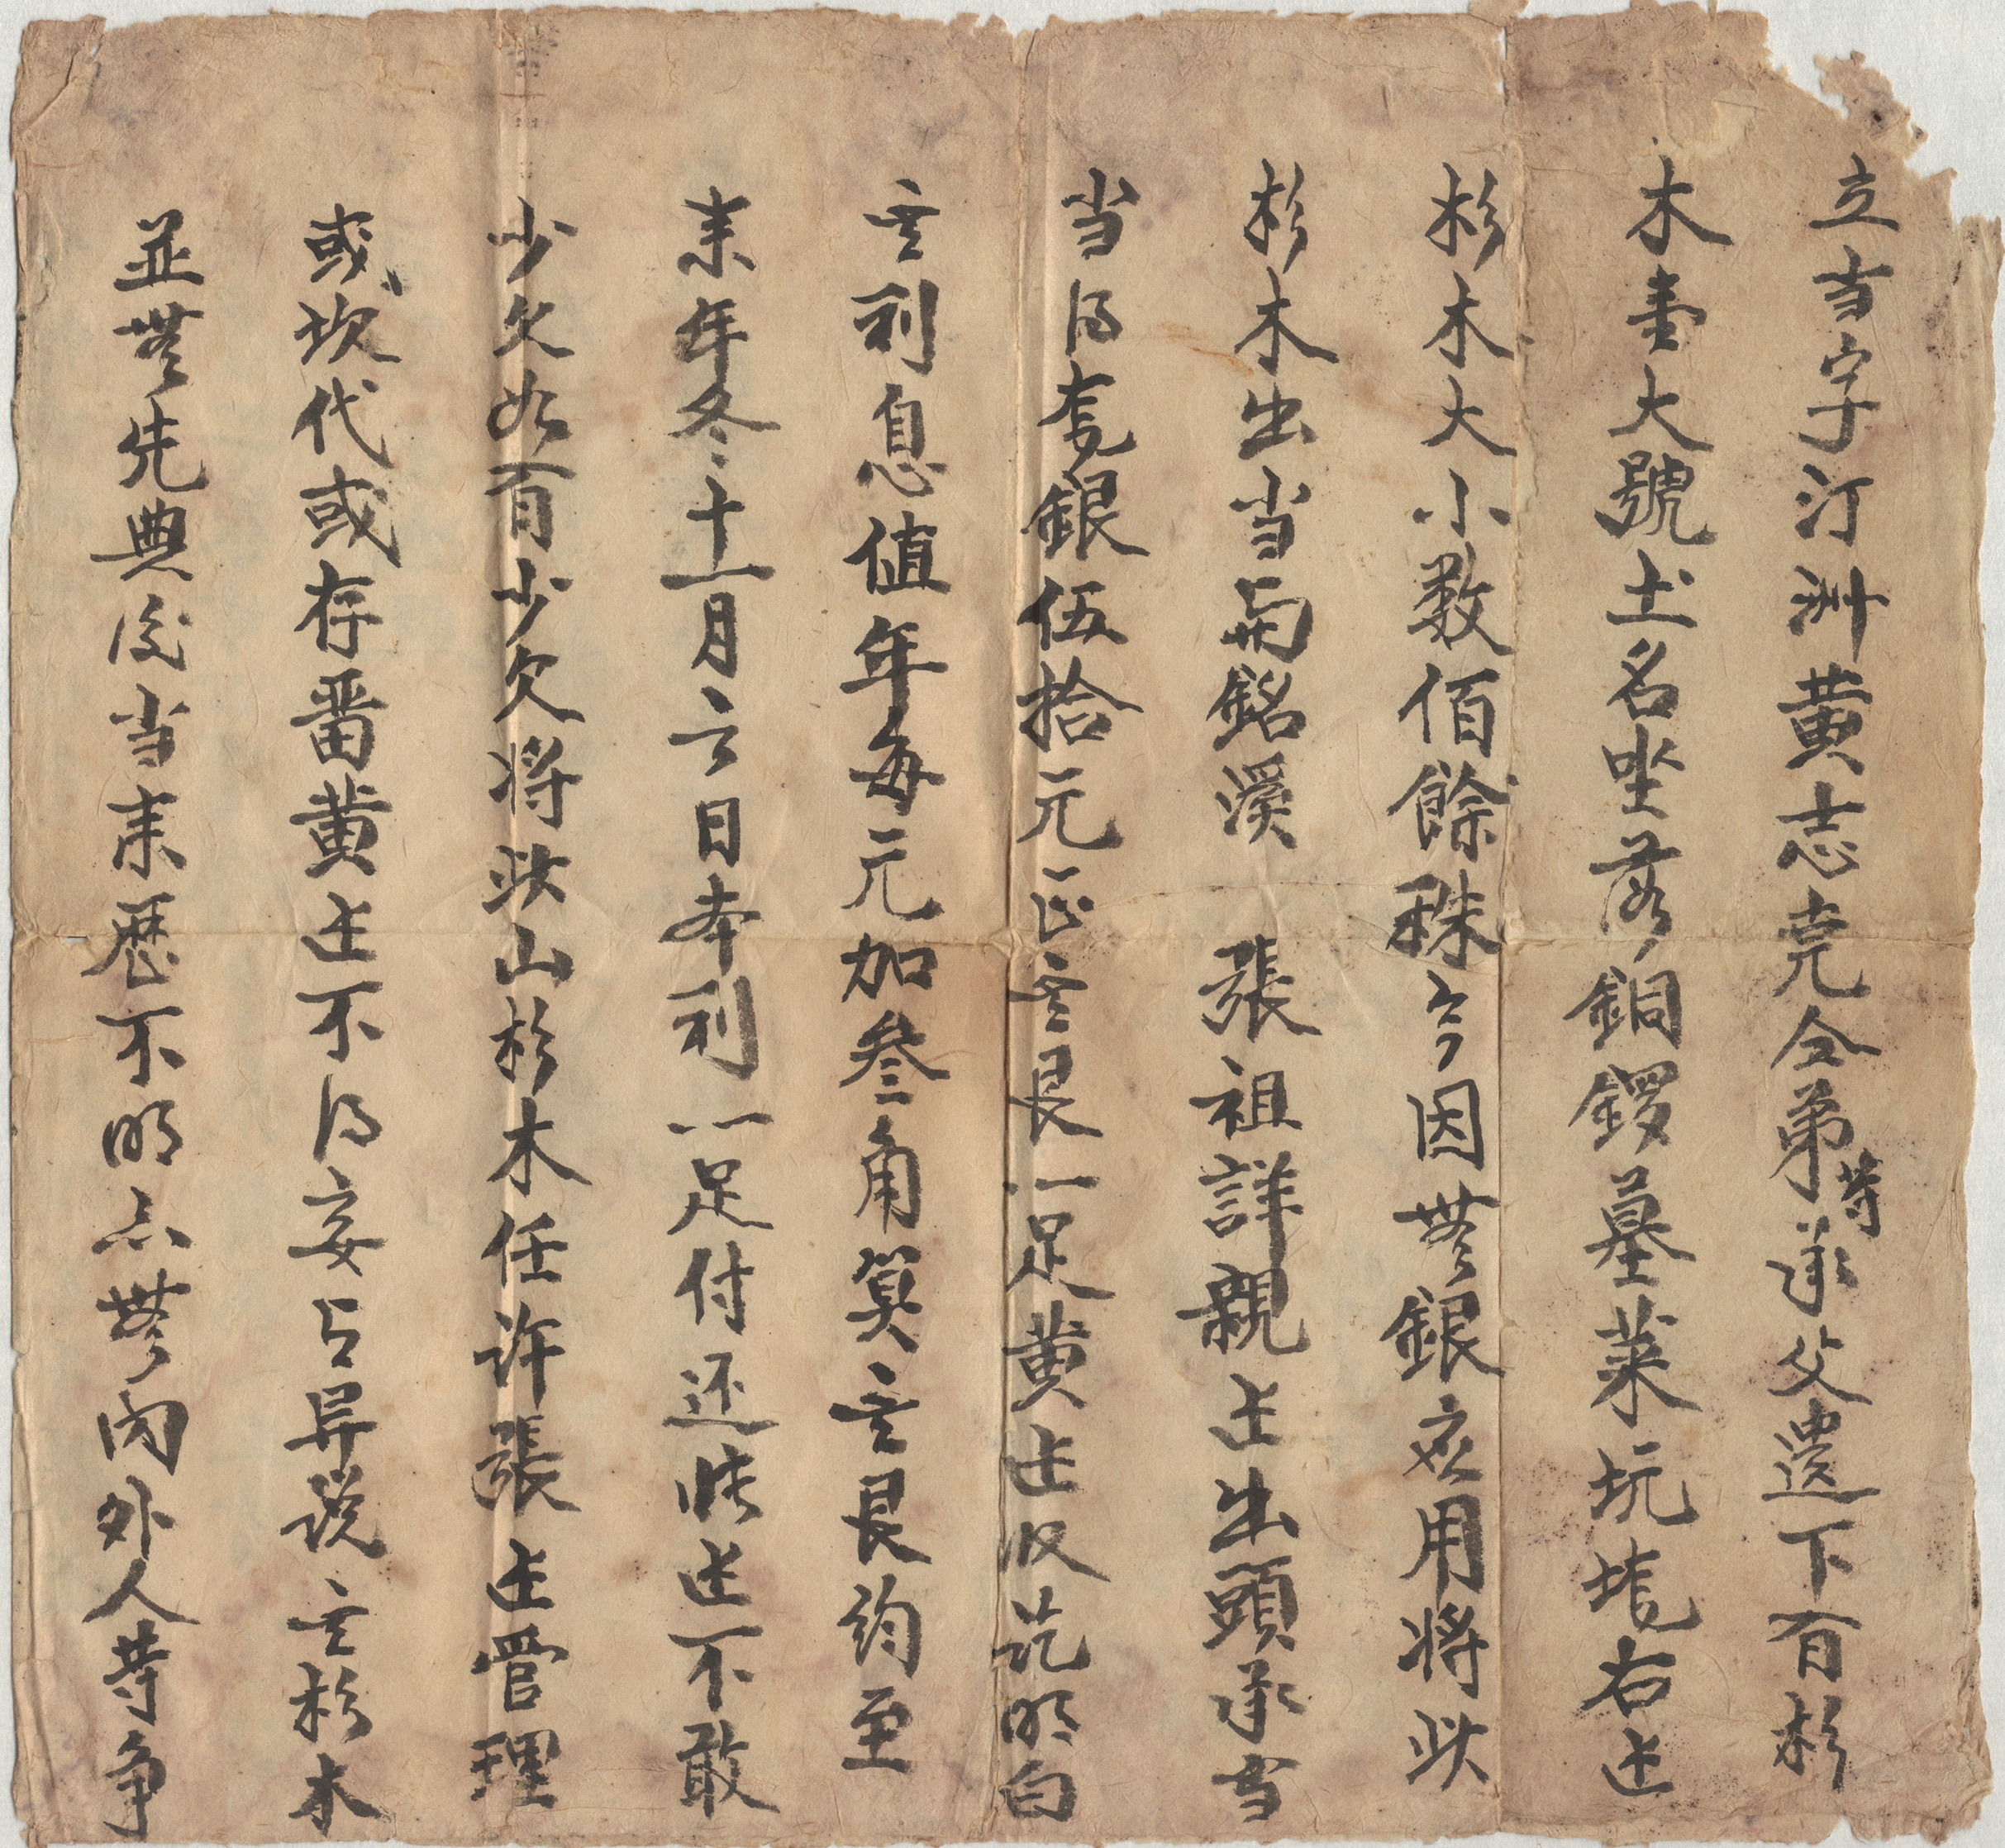 立当字汀洲黄志堯仝弟等承父遺下有杉
木壹大號土名坐落銅鑼墓菜坑塆右边
杉木大小数佰餘秼今因無銀应用将此
杉木出当与銘溪 張祖詳親边出頭承当
当日賣銀伍拾元正其艮一足黄边收訖明白
其利息值年每元加叁角算其艮約至
来年冬十一月六日本利一足付还張边不敢
少欠如有少欠将此山杉木任许張边管理
或坎代或存畨黄边不得妄占异説其杉木
並無先典後当来歷不明亦無内外人等争